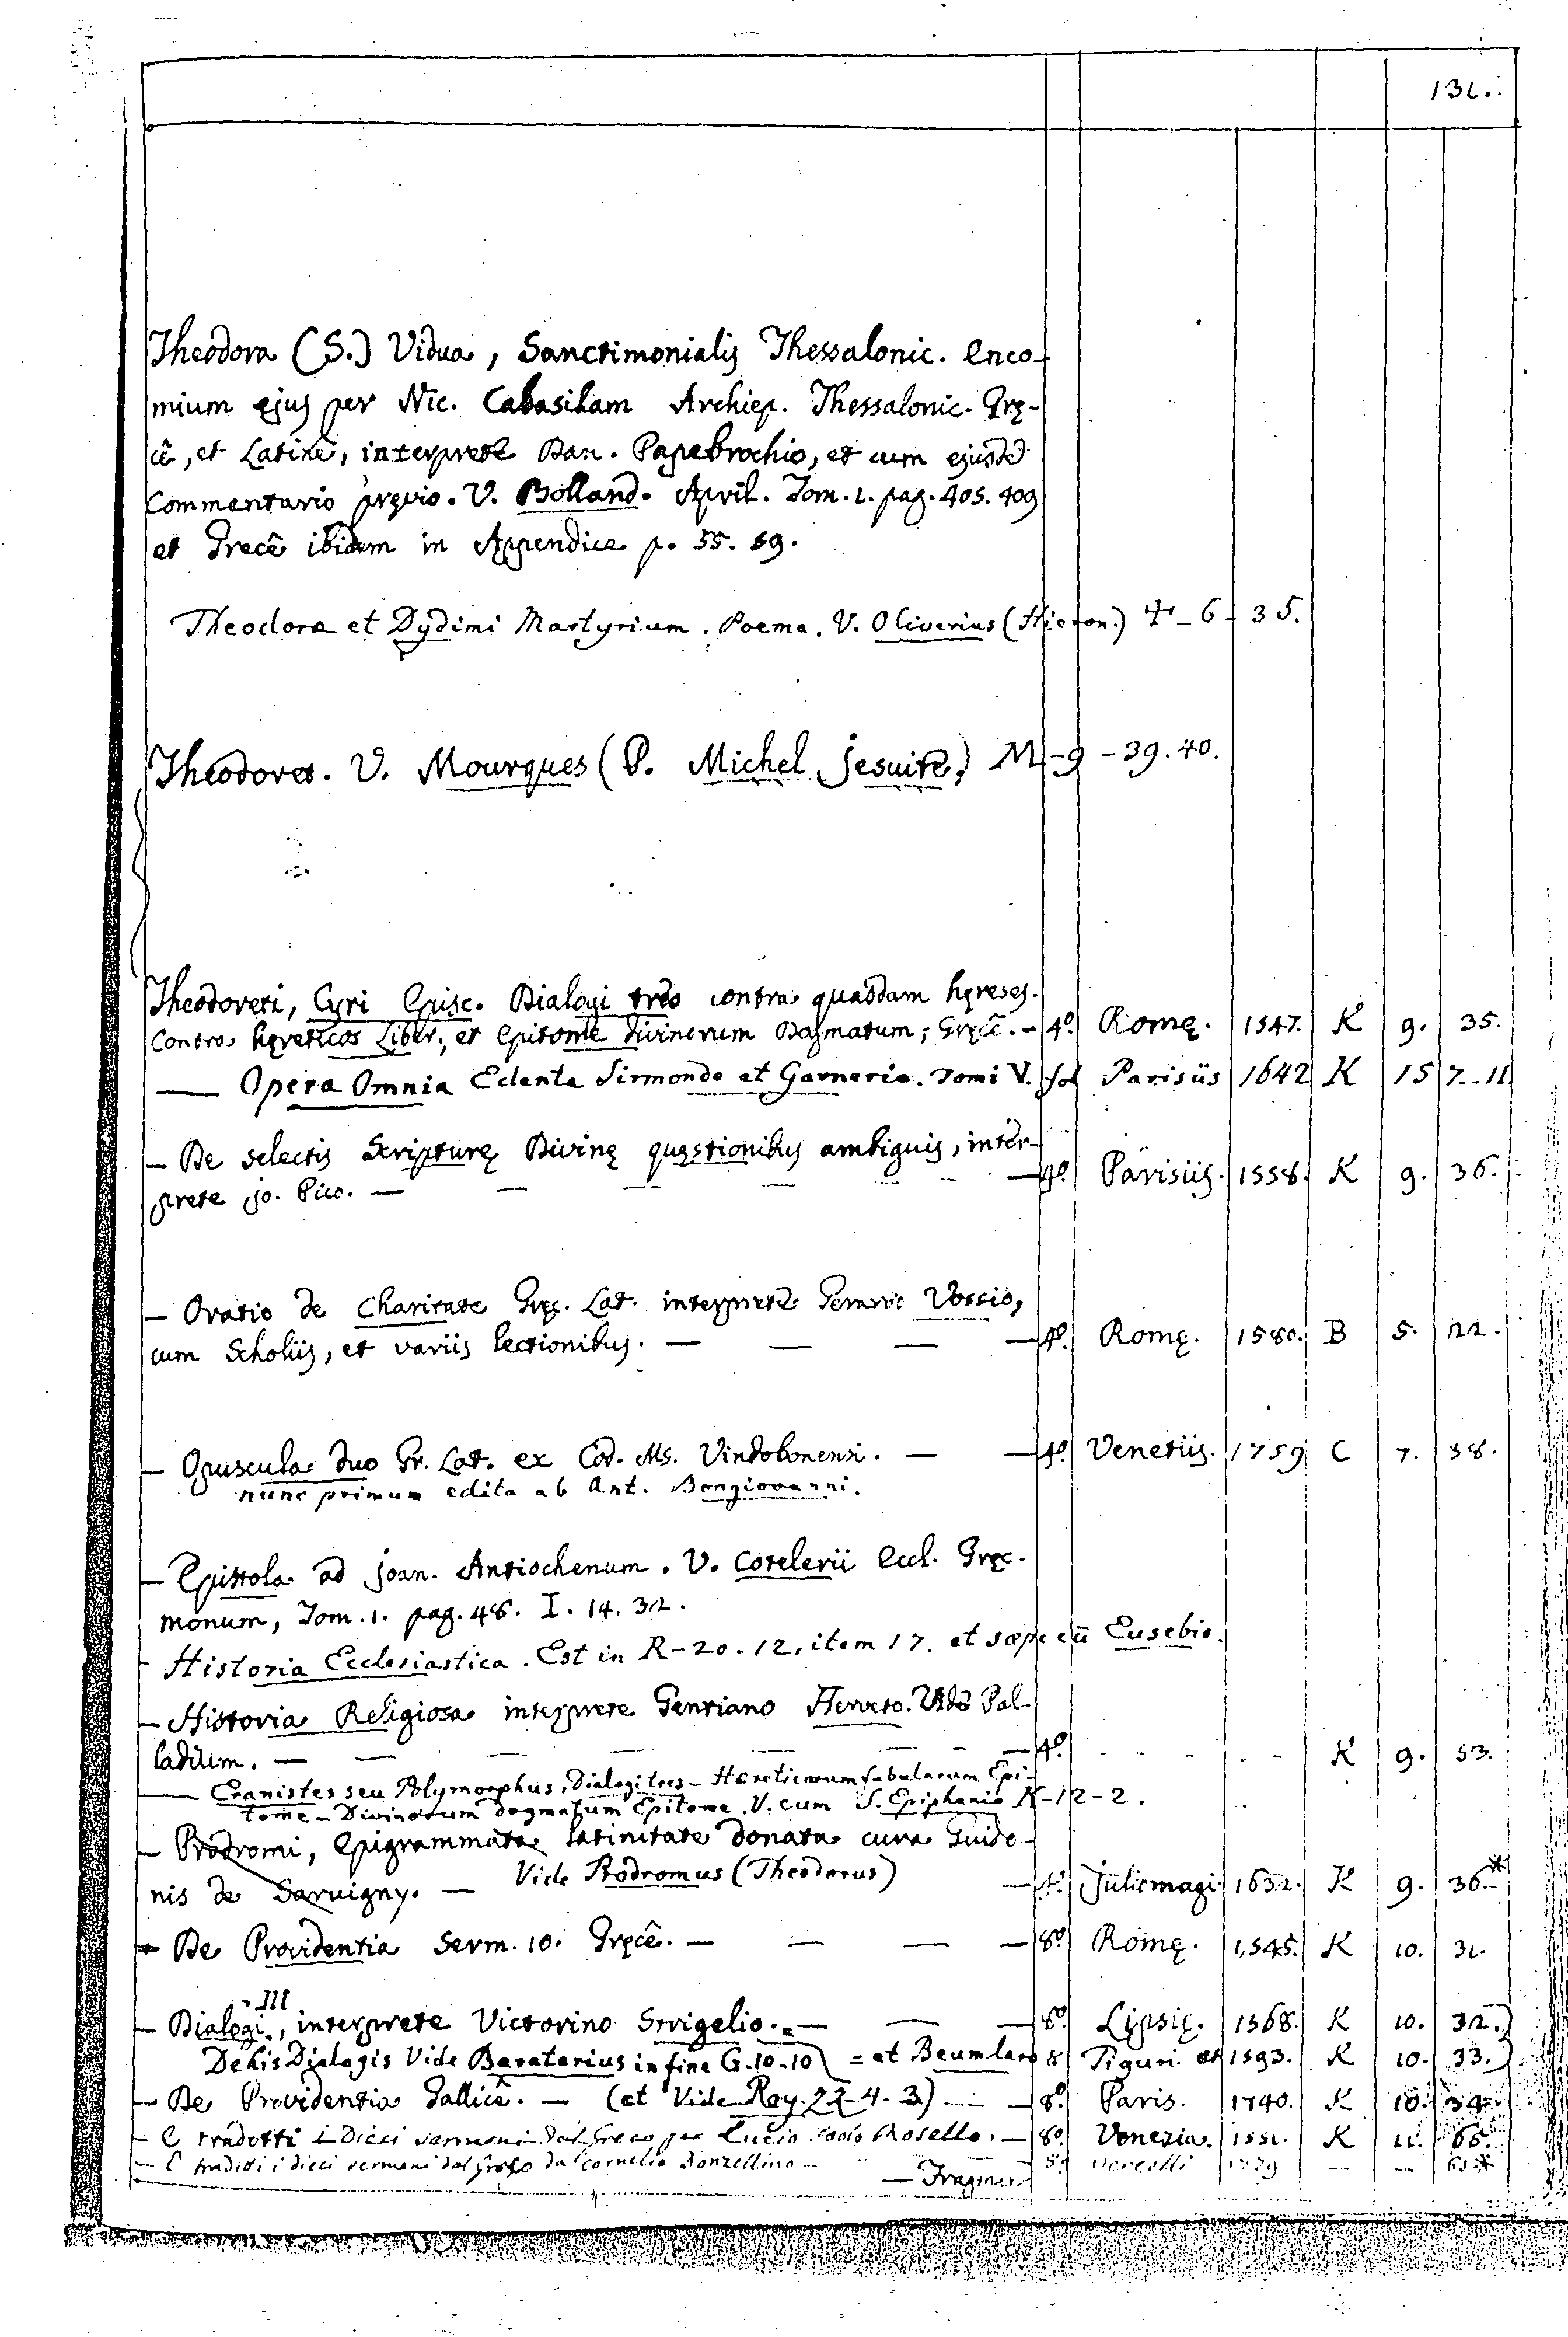 131.
Theodora (S.) Vidua, Sanctimonialis Thessalonic. Enco-
mium ejus per Nic. Cabasilam Archiep. Thessalonic. Gre-
cê, et Latinê, interprete Dan. Papebrochio, et cum ejusdẽ
Commentario pręvio. V. Bolland. April. Tom. 1. pag. 405. 409
et Grecê ibidem in Appendice p. 55. 59.
Theodoræ et Dydimi Martyrium. Poema. V. Oliverius (Hieron.) 4-6-35.
Theodoret. V. Mourgues (P. Michel Jesuite) M-9-39.40.
Theodoreti, Cyri Episc. Dialogi tres contra quasdam hęreses.
Contra hęreticos Liber, et Epitome divinorum Dogmatum, Gręcê. - 4º. Romę. 1547. K 9. 35.
— Opera Omnia Edente Sirmondo et Garnerio. Tomi V. fol Parisiis 1642 K 15 7..11
— De selectis Scripturę Divinę quęstionibus ambiguis, inter-
prete Jo. Pico. — 4º. Parisiis. 1558. K 9. 36.
— Oratio de Charitate Gręc. Lat. interprete Vossio,
cum Scholiis, et variis lectionibus. — 4º. Romę. 1580. B 5. 22.
— Opuscula duo Gr. Lat. ex Cod. Ms. Vindobonensi. — 4º. Venetiis. 1759 C 7. 38.
nunc primum edita ab Ant. Bongiovanni.
— Epistola ad Joan. Antiochenum. V. Cotelerii Eccl. Gręc.
monum, Tom. 1. pag. 48. I. 14. 32.
- Historia Ecclesiastica. Est in R-20-12, item 17. et sæpe cũ Eusebio.
— Historia Religiosa interprete Gentiano Herveto. Vide Pal-
ladium. — 4º. K 9. 53.
— Eranistes seu Polymorphus, Dialogi tres - Hæreticorum fabularum Epi-
tome - Divinorum dogmatum Epitome. V. cum S. Epiphanio K-12-2.
— Prodromi, Epigrammata latinitate donata cura Guido-
nis de Sarvigny. — Vide Prodromus (Theodorus) — 4º. Juliomagi 1632. K 9. 36.*
— De Providentia Serm. 10. Gręcê. — 8º. Romę. 1545. K 10. 31.
— Dialogi III, interprete Victorino Strigelio. — 8º. Lipsię. 1568. K 10. 32.)
De his Dialogis Vide Baraterius in fine G-10-10 = et Beumlero 8 Tiguri et 1593. K 10. 33.)
— De Providentia Gallicê. — (et Vide Rey. 22-4-3) — 8º. Paris. 1740. K 10. 34.
— E tradotti i Dieci sermoni dal Greco per Lucio Paolo Rosello. — 8º. Venezia. 1551. K 11. 65.
— E tradotti i dieci sermoni dal greco da Cornelio Donzellino —
— Fragmen